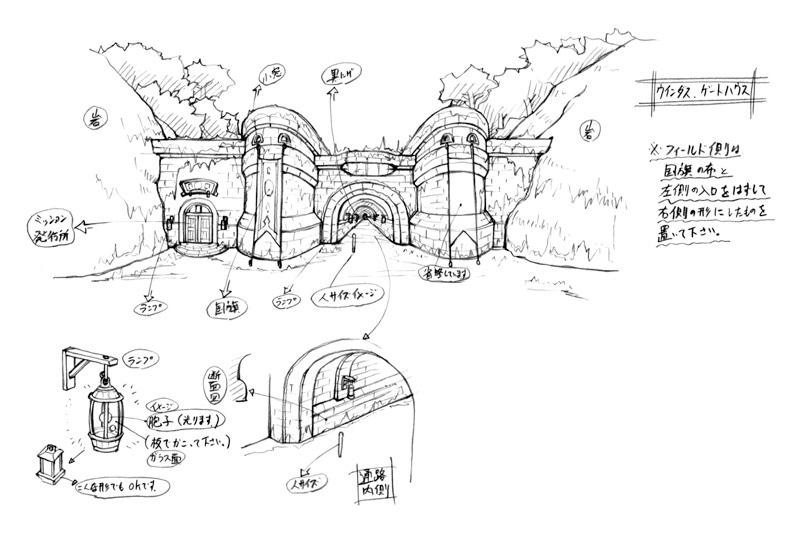 小窓
黒トゲ
岩
岩
ウインダス.ゲートハウス
※フィールド側は
国旗の布と
左側の入口をはずして
右側の形にしたものを
置いて下さい。
ミッション
発行所
ランプ
国旗
ランプ
人サイズイメージ
省略しています
ランプ
イメージ
胞子(光ります)
(板でかこって下さい。)
ガラス面
こんな形でもOKです。
断面図
人サイズ
通路
内側